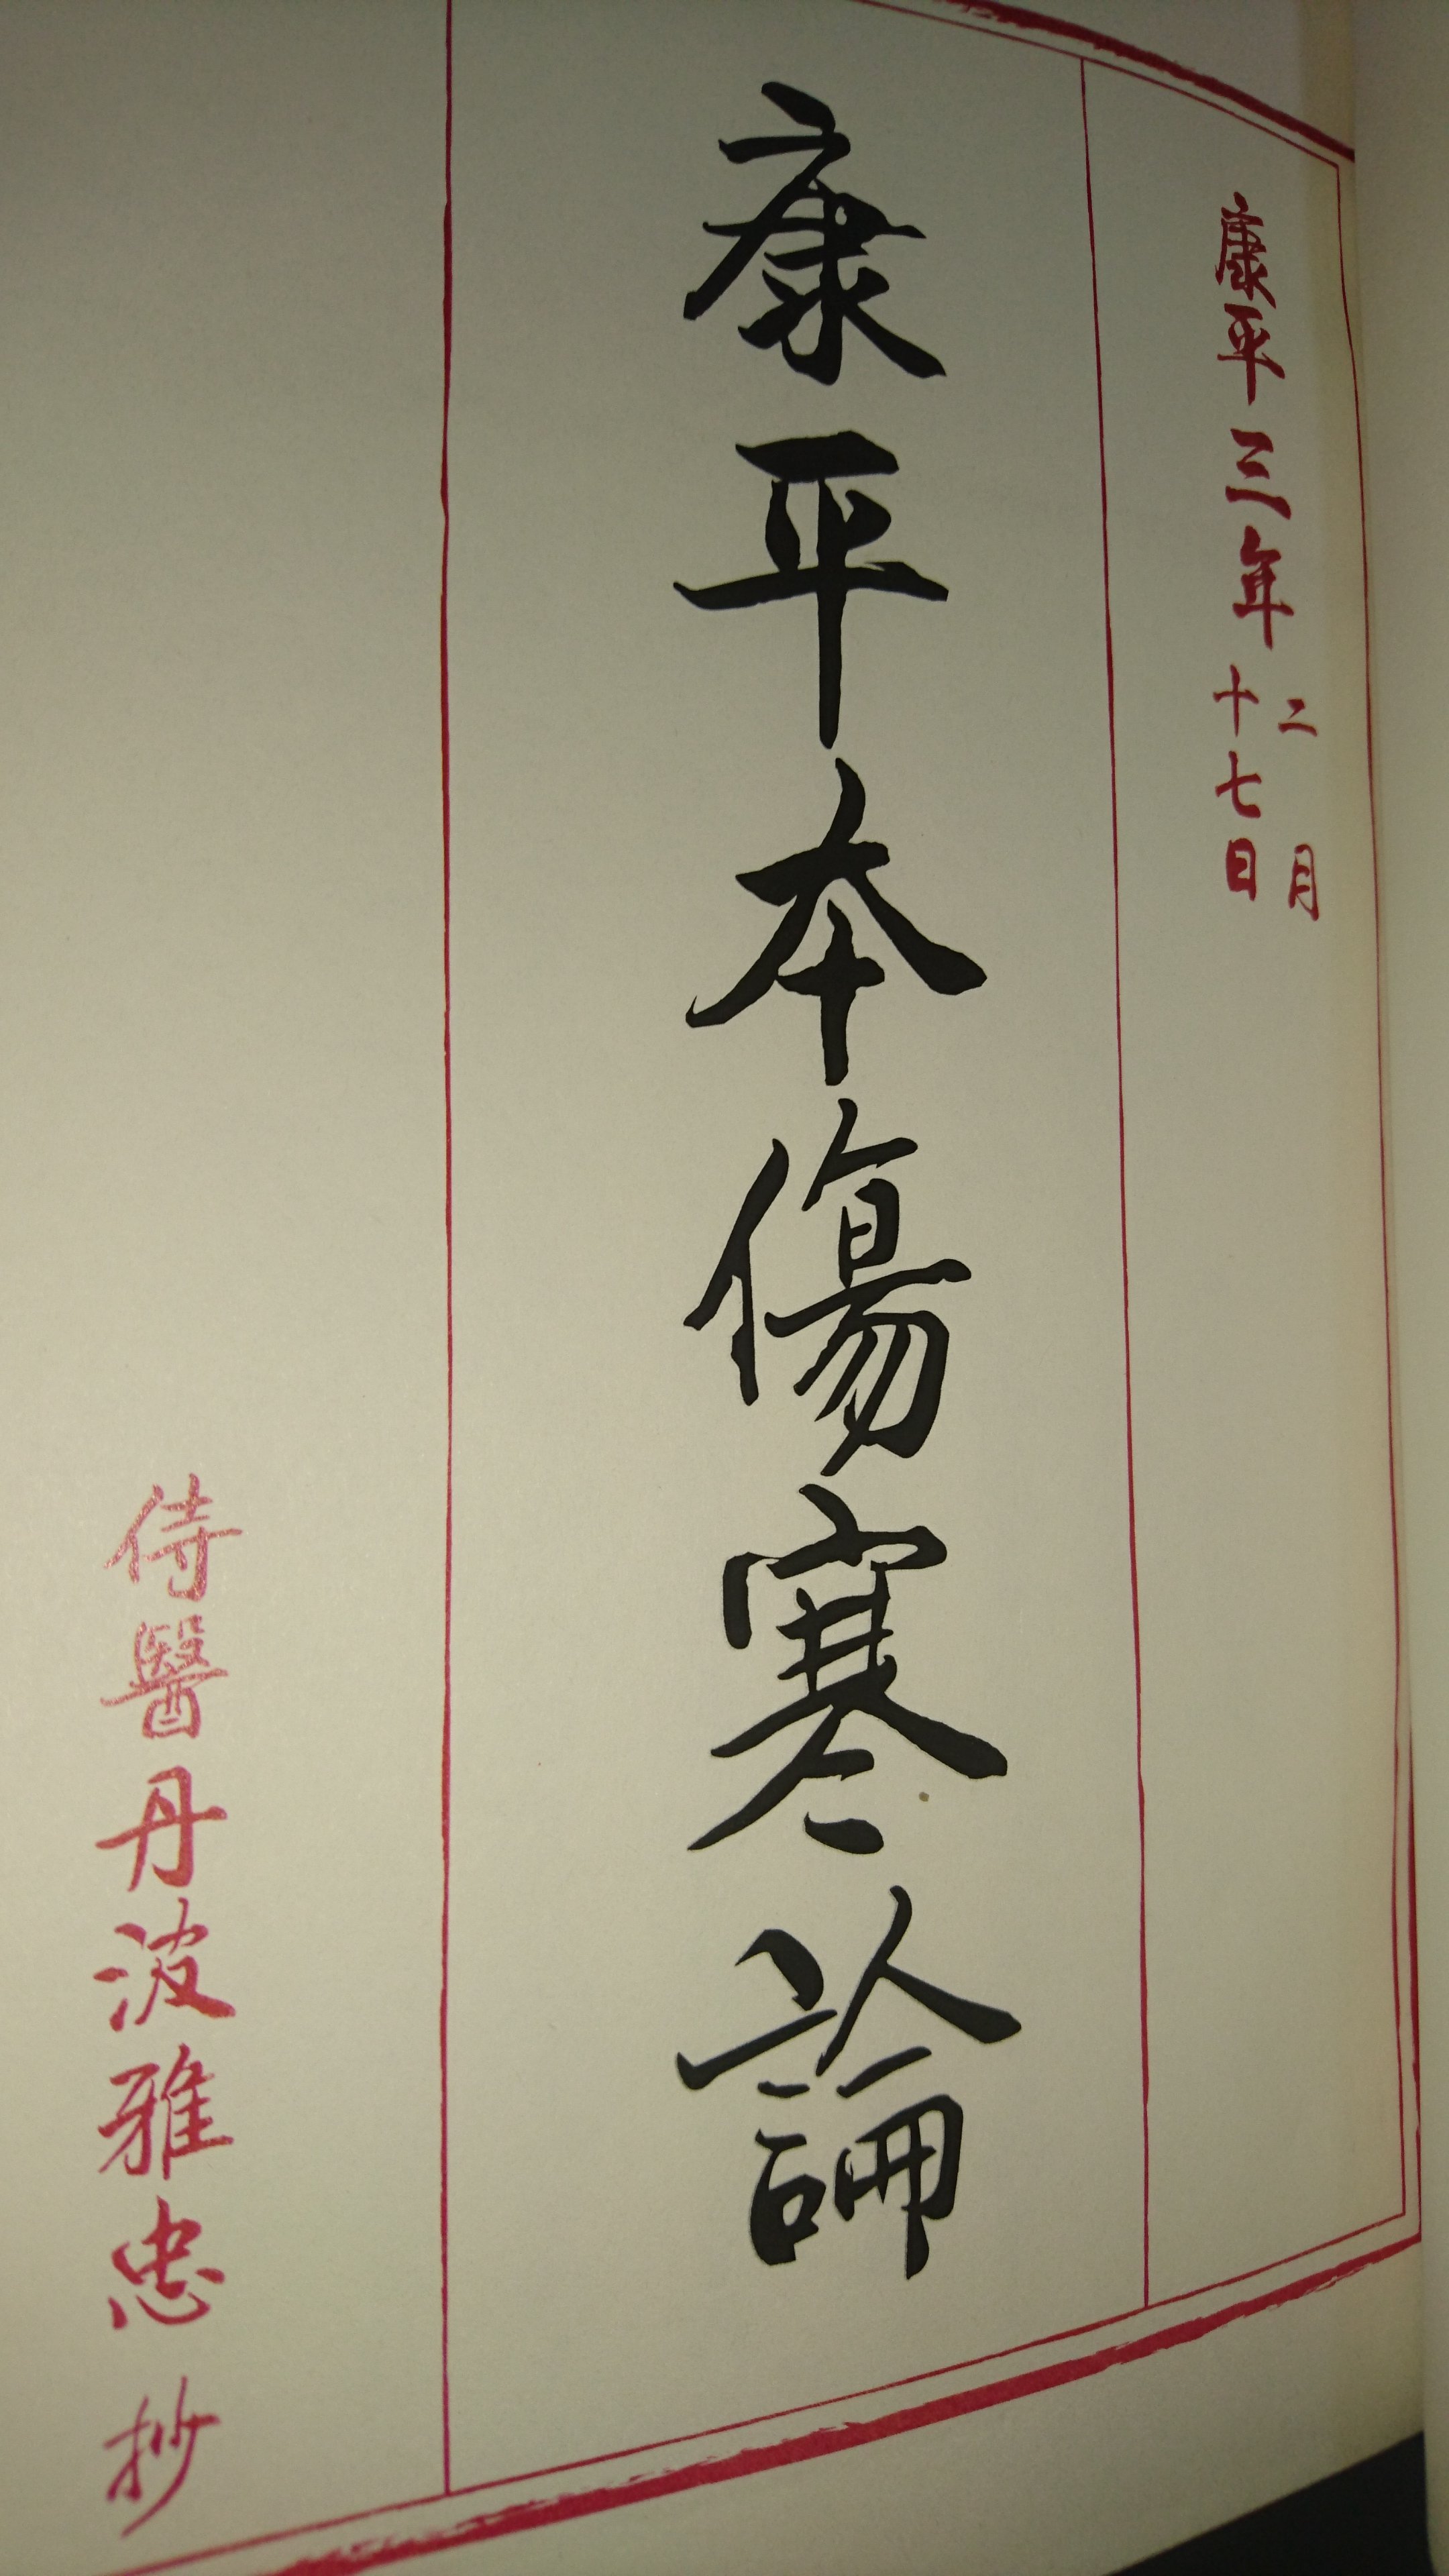 康平三年二月
十七日
康平本傷寒論
侍醫丹波雅忠抄